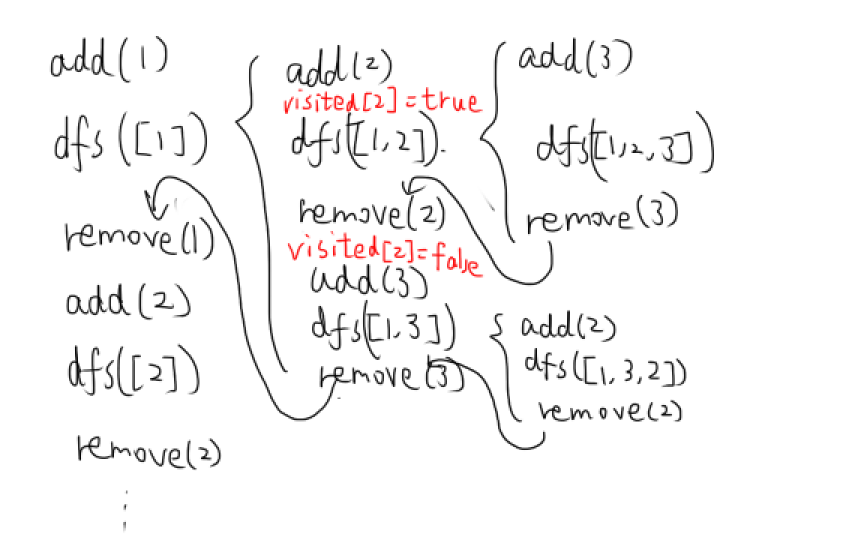 add(1)
dfs([1])
remove(1)
add(2)
dfs([2])
remove(2)
add(2)
visited[2]=true
dfs([1,2]).
remove(2)
visited[2]=false
add(3)
dfs([1,3])
remove(3)
add(3)
dfs([1,2,3])
remove(3)
add(2)
dfs([1,3,2])
remove(2)